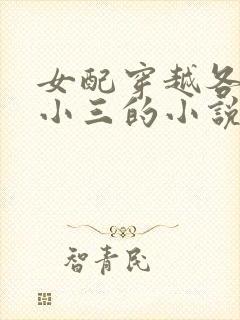 女配穿越各
小三的小說
智青民